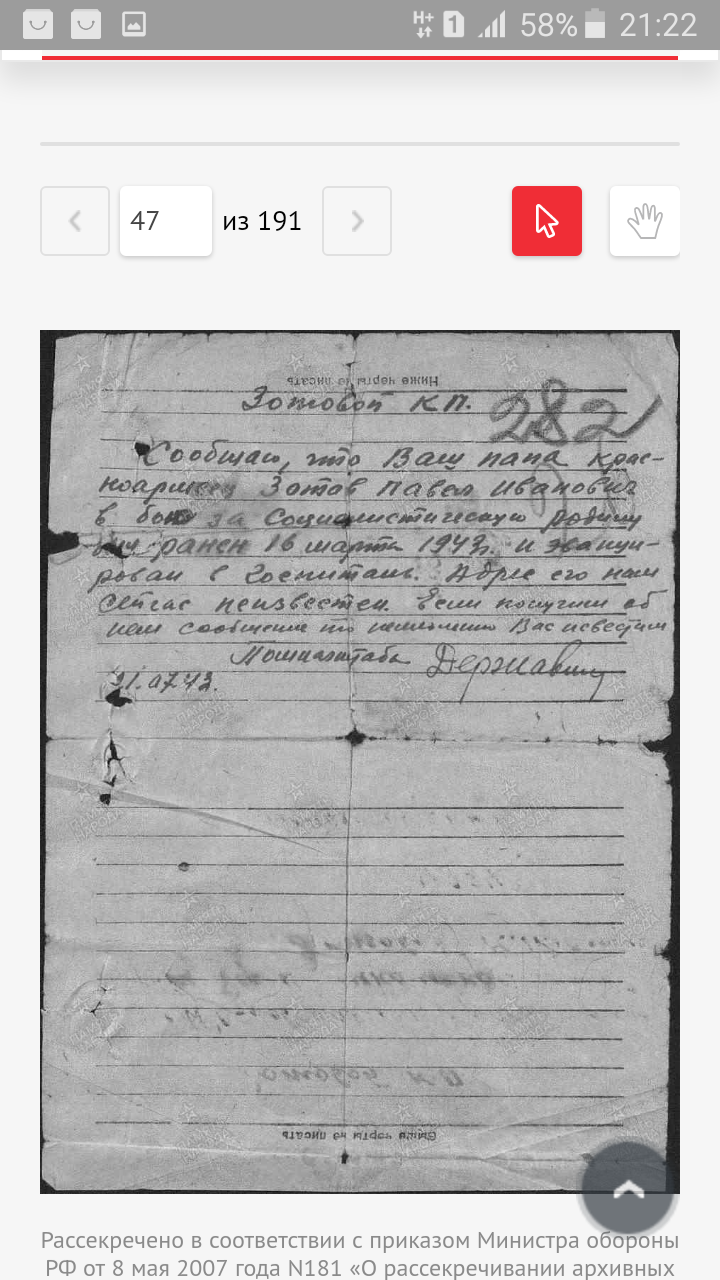 58% 21:22
47 из 191
Ниже черты не писать
Зотовой К.П.
282
Сообщаю, что Ваш папа крас-
ноармеец Зотов Павел Иванович
в бою за Социалистическую родину
был ранен 16 марта 1943г. и эвакуи-
рован в госпиталь. Адрес его нам
сейчас неизвестен. Если получим об
нем сообщение то немедленно Вас известим
Помначштаба Державин
21.07.43.
Выше черты не писать
Рассекречено в соответствии с приказом Министра обороны
РФ от 8 мая 2007 года N181 «О рассекречивании архивных